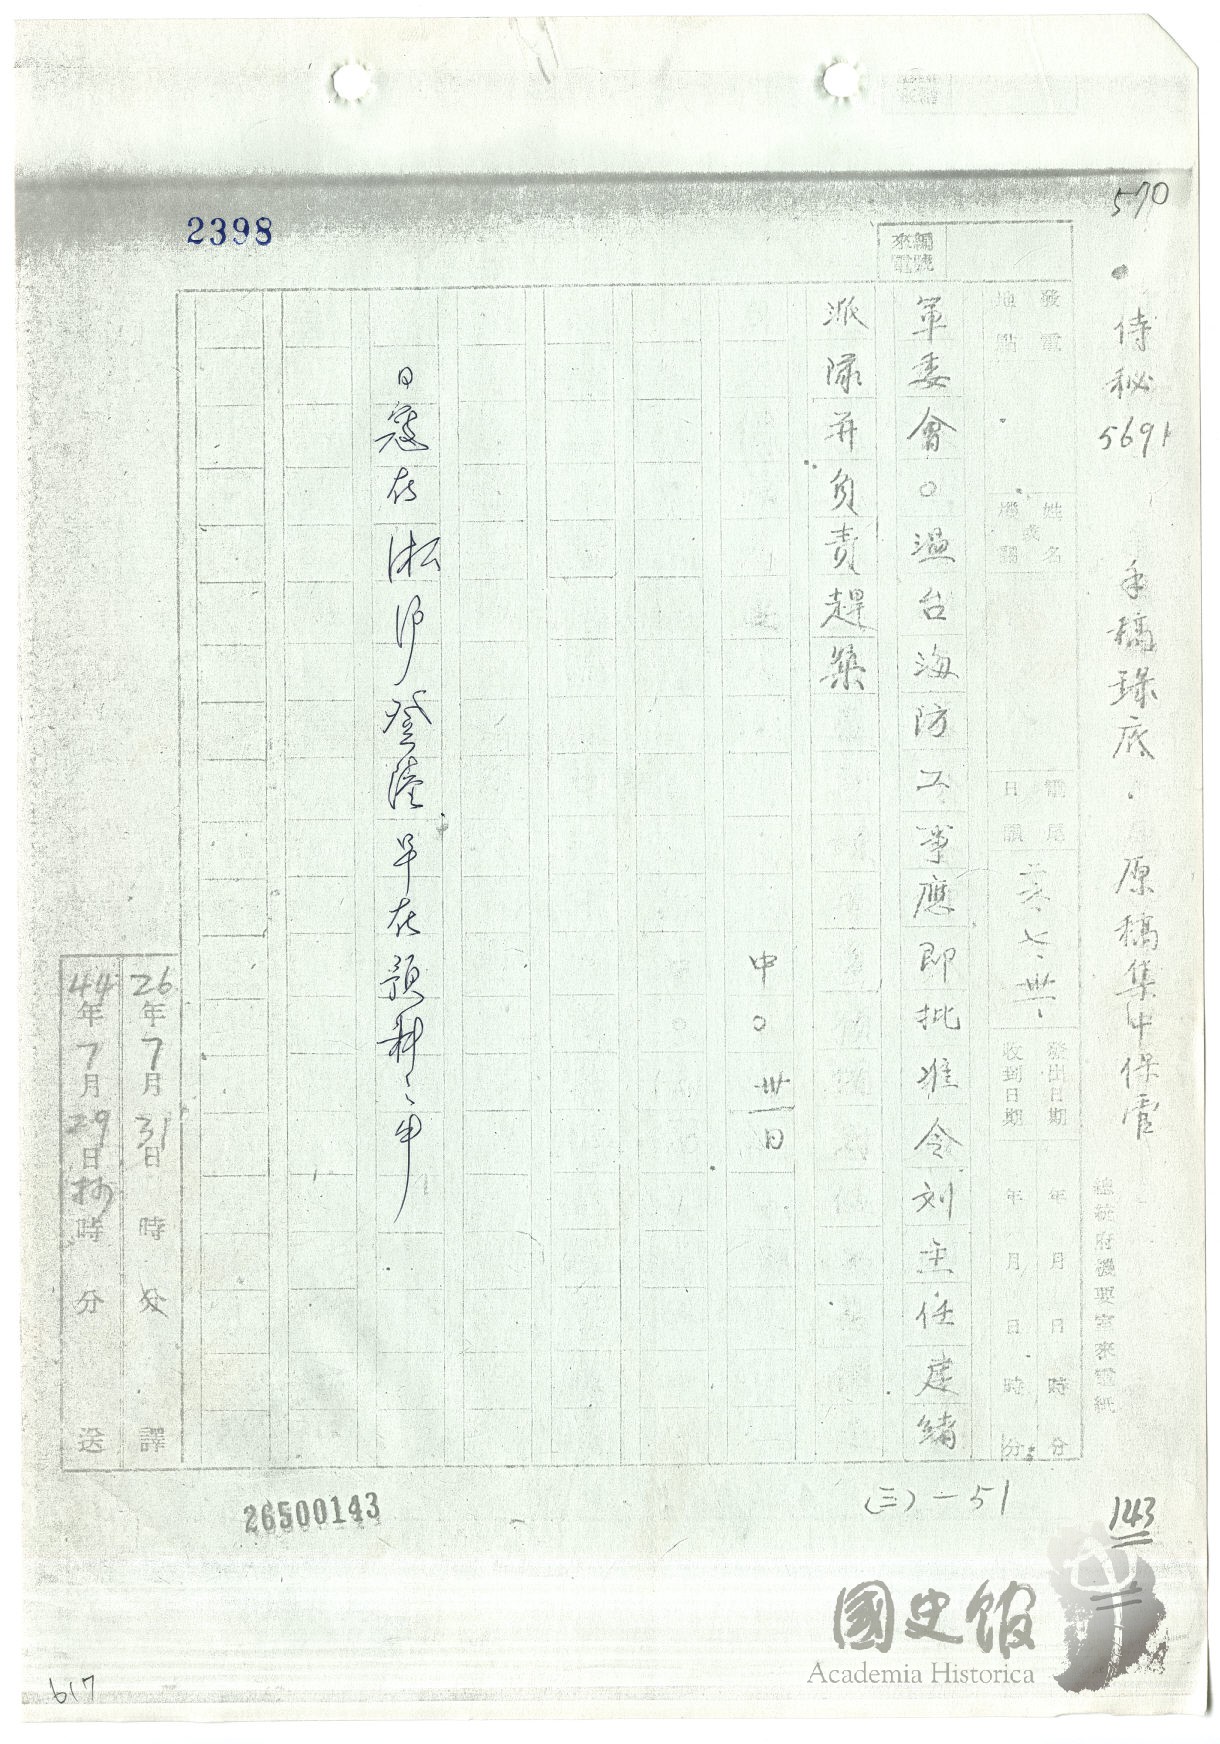 570
侍秘5691 手稿録底．原稿集中保管
總統府機要室來電紙
來電
編號
發電地點
姓名或機關
電尾日韻
二六、七、卅一、
發出日期 年 月 日 時 分
收到日期 年 月 日 時 分
軍委會○溫台海防工事應即批准令刘主任建緒
派隊并負責趕築
中○卅一日
日寇在淞滬登陸早在預料之中
26年7月31日 時 分 譯
44年7月29日抄 時 分 送
2398
26500143
(三)一51
143
國史館
Academia Historica
617